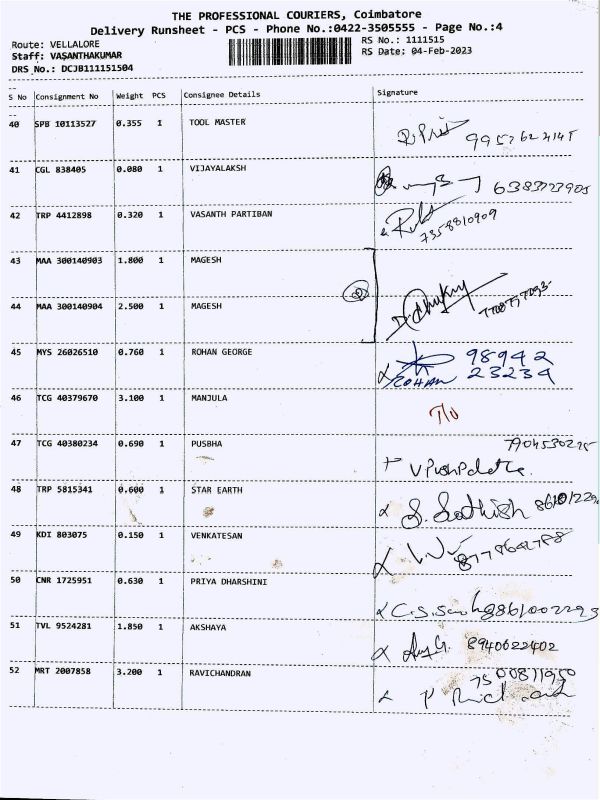 THE PROFESSIONAL COURIERS, Coimbatore
Delivery Runsheet - PCS - Phone No.:0422-3505555 - Page No.:4
Route: VELLALORE RS No.: 1111515
Staff: VASANTHAKUMAR RS Date: 04-Feb-2023
DRS No.: DCJB111151504
S No Consignment No Weight PCS Consignee Details Signature
40 SPB 10113527 0.355 1 TOOL MASTER
41 CGL 838405 0.080 1 VIJAYALAKSH
42 TRP 4412898 0.320 1 VASANTH PARTIBAN
7358810909
43 MAA 300140903 1.800 1 MAGESH
44 MAA 300140904 2.500 1 MAGESH
45 MYS 26026510 0.760 1 ROHAN GEORGE 98942
ROHAN 23234
46 TCG 40379670 3.100 1 MANJULA
47 TCG 40380234 0.690 1 PUSBHA
48 TRP 5815341 0.600 1 STAR EARTH S. Sathish
49 KDI 803075 0.150 1 VENKATESAN
50 CNR 1725951 0.630 1 PRIYA DHARSHINI
51 TVL 9524281 1.850 1 AKSHAYA 8940622402
52 MRT 2007858 3.200 1 RAVICHANDRAN